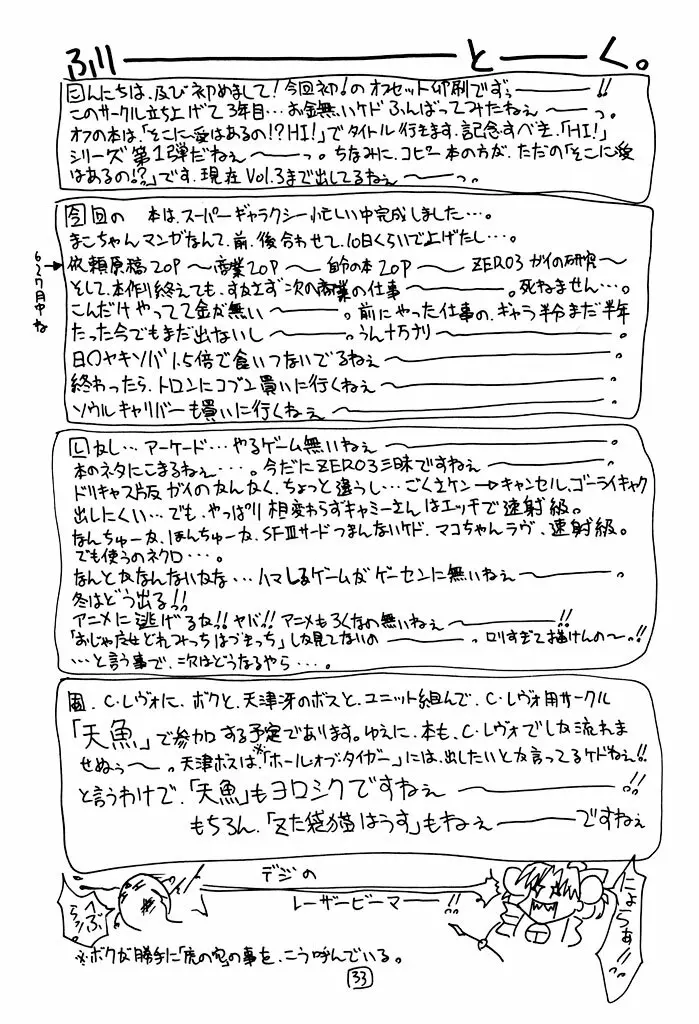 ふ川――と――く。
こんにちは、及び初めまして!今回初!のオフセット印刷ですぅ――!!
このサークル立ち上げて3年目…お金無いケドふんばってみたねぇ――っ。
オフの本は、「そこに愛はあるの!?HI!」でタイトル行きます、記念すべき、「HI!」
シリーズ第1弾だねぇ――っ。ちなみに、コピー本の方が、ただの「そこに愛
はあるの!?」です、現在Vol.3まで出してるねぇ――っ。
今回の 本は、スーパーギャラクシー忙しい中完成しました…。
まこちゃんマンガなんて、前、後合わせて、10日くらいで上げたし…。
6~7月中ね
依頼原稿20P~商業20P~自分の本20P~ZERO3ガイの研究~
そして、本作り終えても、すぐさま次の商業の仕事――。死ねません…。
こんだけやってて金が無い――。前にやった仕事の、ギャラ半分まだ半年
たった今でもまだ出ないし――。うん十万チリ――。
日〇ヤキソバ1.5倍で食いつないでるねぇ――。
終わったら、トロンにコブン買いに行くねぇ――。
ソウルキャリバーも買いに行くねぇ――。
しかし…アーケード…やるゲーム無いねぇ――。
本のネタにこまるねぇ…。今だにZERO3三昧ですねぇ――。
ドリキャス版ガイのなんなく、ちょっと違うし…ごくさケン→キャンセル、ゴーライキャク
出しにくい…でも、やっぱり相変わらずキャミーさんはエッチで速射級。
なんちゅーか、ほんちゅーか、SFⅢサードつまんないケド、マコちゃんラヴ、速射級。
でも使うのネクロ…。
なんとかなんないかな…ハマれるゲームがゲーセンに無いねぇ――。
冬はどう出る!!
アニメに逃げるな!!ヤバ!!アニメもろくなの無いねぇ――!!
「おじゃ魔女どれみっちはづきっち」しか見てないの――。ロリすぎて描けんの~。!!
…と言う事で、次はどうなるやら…。
C・レヴォに、ボクと、天津冴のボスと、ユニット組んで、C・レヴォ用サークル
「天魚」で参加する予定であります。ゆえに、本も、C・レヴォでしか流れま
せぬぅ――。天津ボスは、※「ホールオブタイガー」には、出したいとか言ってるケドねぇ!!
と言うわけで、「天魚」もヨロシクですねぇ――!!
もちろん、「ずた袋猫はうす」もねぇ――ですねぇ
デジの
レーザービーマ――!!
へぶらっ!!
にょろぉ!!
※ボクが勝手に「虎の穴」の事を、こう呼んでいる。
33